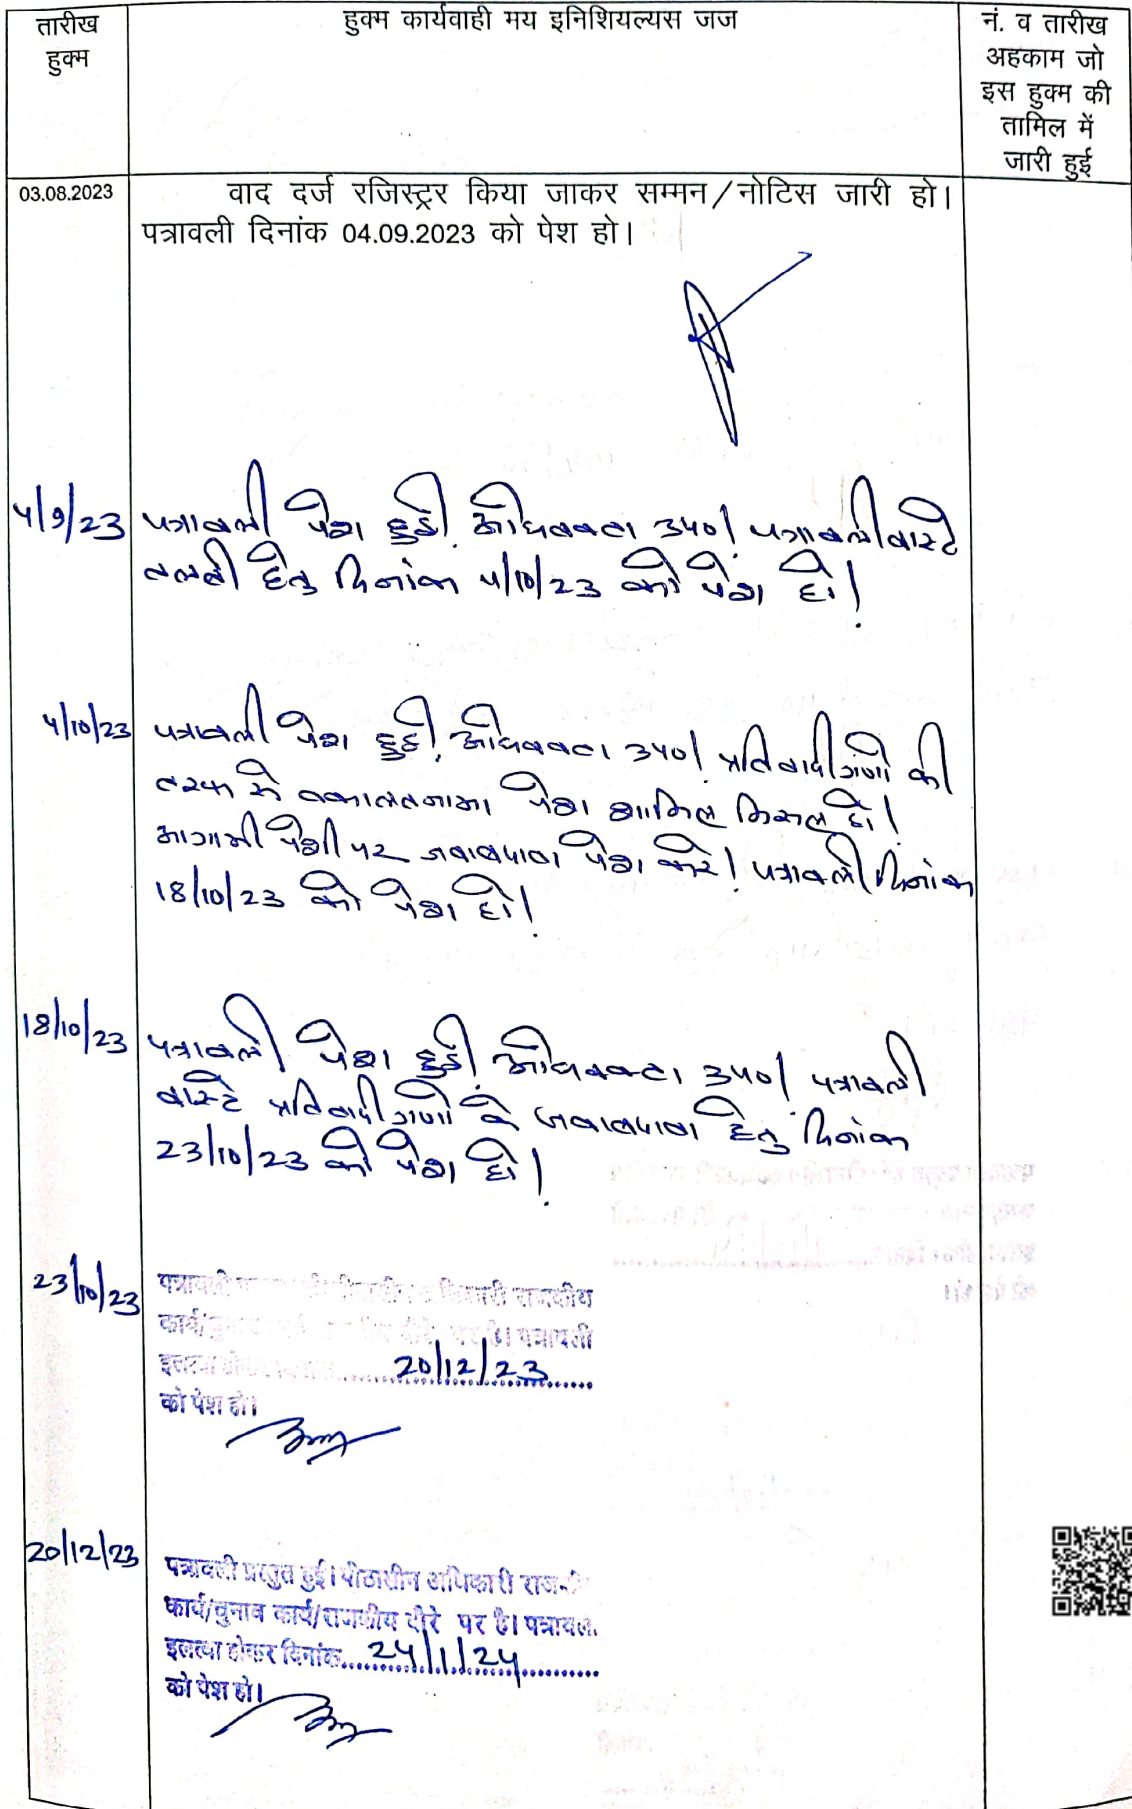 तारीख
हुक्म
हुक्म कार्यवाही मय इनिशियल्यस जज
नं. व तारीख
अहकाम जो
इस हुक्म की
तामिल में
जारी हुई
03.08.2023
वाद दर्ज रजिस्ट्रर किया जाकर सम्मन/नोटिस जारी हो।
पत्रावली दिनांक 04.09.2023 को पेश हो।
4/9/23
पत्रावली पेश हुई, अधिवक्ता उप०। पत्रावली वास्ते
तलबी हेतु दिनांक 4/10/23 को पेश हो।
4/10/23
पत्रावली पेश हुई, अधिवक्ता उप०। प्रतिवादीगणों की
तरफ से वकालतनामा पेश शामिल मिसल हो।
आगामी पेशी पर जवाबदावा पेश करे। पत्रावली दिनांक
18/10/23 को पेश हो।
18/10/23
पत्रावली पेश हुई, अधिवक्ता उप०। पत्रावली
वास्ते प्रतिवादीगणों के जवाबदावा हेतु दिनांक
23/10/23 को पेश हो।
23/10/23
पत्रावली राजकीय
कार्य/ पर है। पत्रावली
20/12/23
को पेश हो।
20/12/23
पत्रावली प्रस्तुत हुई। पीठासीन अधिकारी
कार्य/चुनाव कार्य/राजकीय दौरे पर है।
इलत्वा होकर दिनांक....24/1/24
को पेश हो।